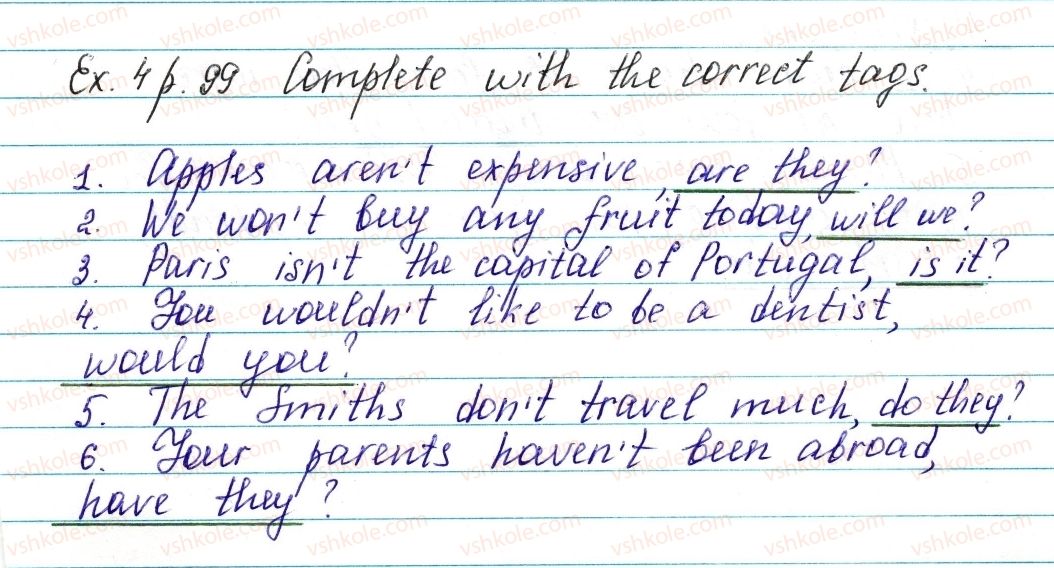 Ex. 4 p. 99 Complete with the correct tags.
1. Apples aren't expensive, are they?
2. We won't buy any fruit today, will we?
3. Paris isn't the capital of Portugal, is it?
4. You wouldn't like to be a dentist,
would you?
5. The Smiths don't travel much, do they?
6. Your parents haven't been abroad,
have they?
vshkole.com